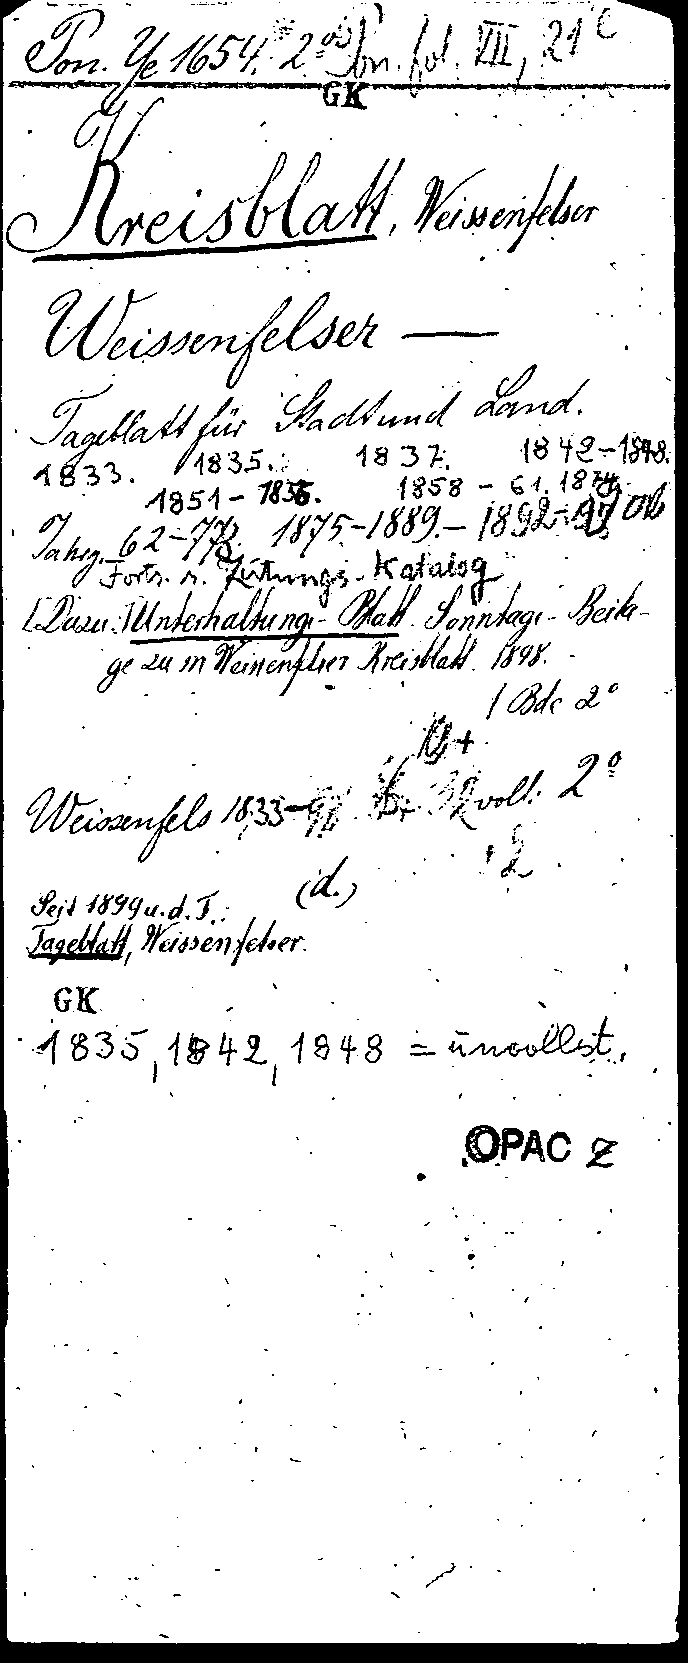 Pon. Ye 1654. 2° Pon. fol. VII, 21 c
GK
Kreisblatt, Weissenfelser
Weissenfelser —
Tageblatt für Stadt und Land.
1833. 1835. 1837. 1842-1848.
1851-1856. 1858-61. 1874
Jahrg. 62-77 1875-1889.-1892-97
Forts. s. Zeitungs-Katalog
[Dazu:] Unterhaltungs-Blatt. Sonntags-Beila-
ge zum Weissenfelser Kreisblatt. 1898.
1 Bde 2°
Weissenfels 1833- voll. 2°
(d.)
Seit 1899 u. d. T.:
Tageblatt, Weissenfelser.
GK
1835, 1842, 1848 = unvollst.
OPAC Z